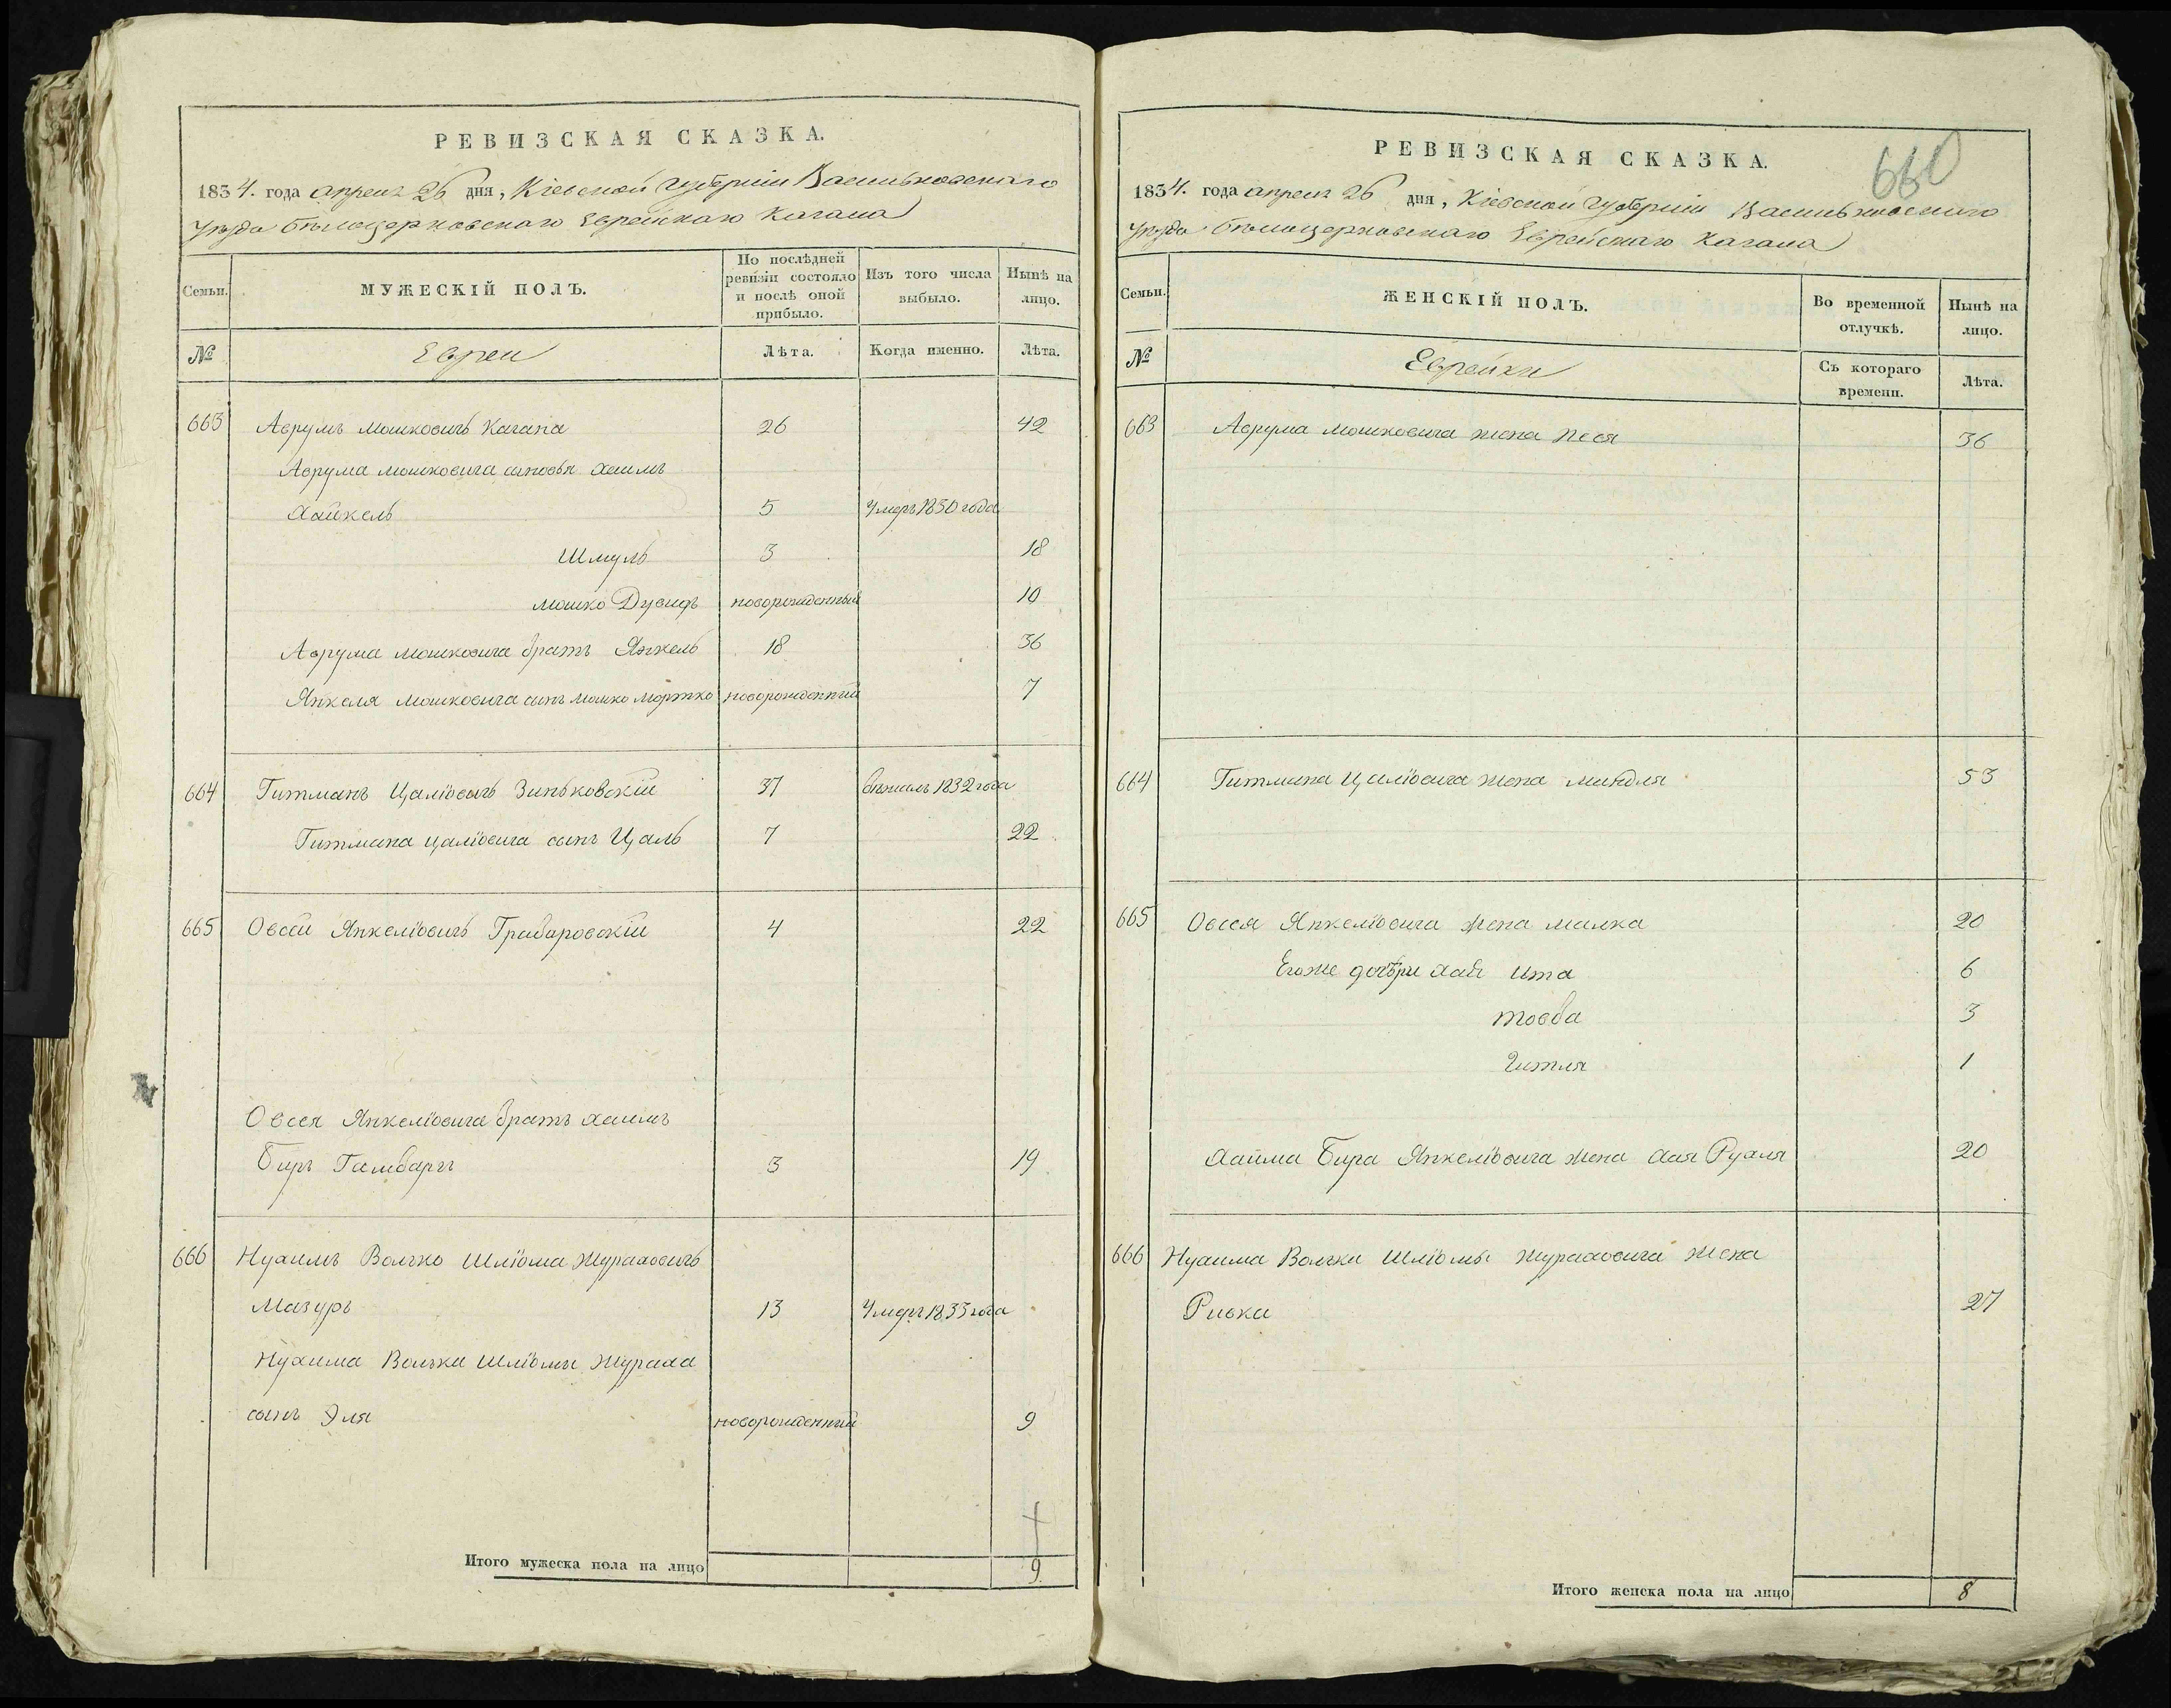 РЕВИЗСКАЯ СКАЗКА.
1834. года апреля 26 дня, Кіевской Губерніи Васильковскаго
уѣзда бѣлоцерковскаго Еврейскаго Кагала
Семьи.
МУЖЕСКІЙ ПОЛЪ.
По послѣдней ревизіи состояло и послѣ оной прибыло.
Изъ того числа выбыло.
Нынѣ на лицо.
№
Евреи
Лѣта.
Когда именно.
Лѣта.
663 Аврумъ мошковичъ Кагана 26 42
Аврума мошковича сыновья хаимъ
Хайкель 5 Умеръ 1830 года
Шмуль 3 18
мошко Дувидъ новорожденный 10
Аврума мошковича братъ Янкель 18 36
Янкеля мошковича сынъ мошко мортко новорожденный 7
664 Гитманъ Цаліовичъ Зиньковскій 37 бѣжалъ 1832 года
Гитмана цаліовича сынъ Цаль 7 22
665 Овсей Янкеліовичъ Грабаровскій 4 22
Овсея Янкеліовича братъ хаимъ
Биръ 3 19
666 Нухимъ Волько Шліома Журахович
Мазуръ 13 Умеръ 1833 года
Нухима Волька Шліомы Жураха
сынъ Эля новорожденный 9
Итого мужеска пола на лицо 9
РЕВИЗСКАЯ СКАЗКА.
660
1834. года апреля 26 дня, Кіевской Губерніи Васильковскаго
уѣзда бѣлоцерковскаго Еврейскаго Кагала
Семьи.
ЖЕНСКІЙ ПОЛЪ.
Во временной отлучкѣ.
Нынѣ на лицо.
№
Еврейки
Съ котораго времени.
Лѣта.
663 Аврума мошковича жена Песя 36
664 Гитмана Цаліовича жена миндля 53
665 Овсея Янкеліовича жена малка 20
Егоже дочѣри хая ита 6
товба 3
Гитля 1
Хаима Бира Янкеліовича жена хая Рухля 20
666 Нухима Волька Шліомы Жураховича жена
Ривка 27
Итого женска пола на лицо 8